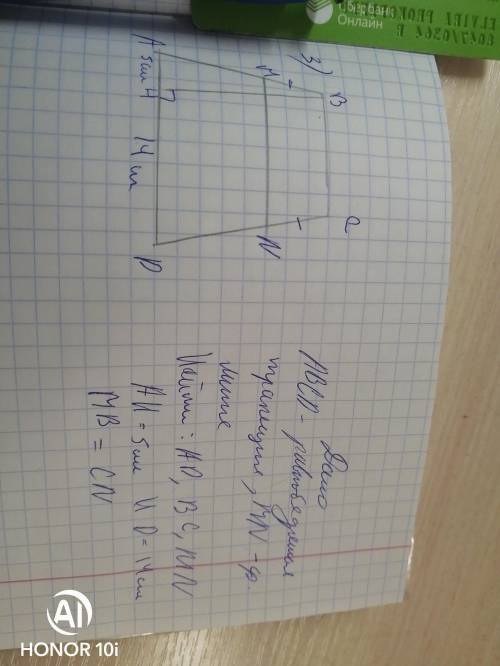 3)
A 5см H 14 см D
M B
N C
Дано
ABCD - равнобедренная
трапеция, MN - ср.
линия
Найти: AD, BC, MN
AH = 5см HD = 14 см
MB = CN
Сбербанк
Онлайн
AI
HONOR 10i